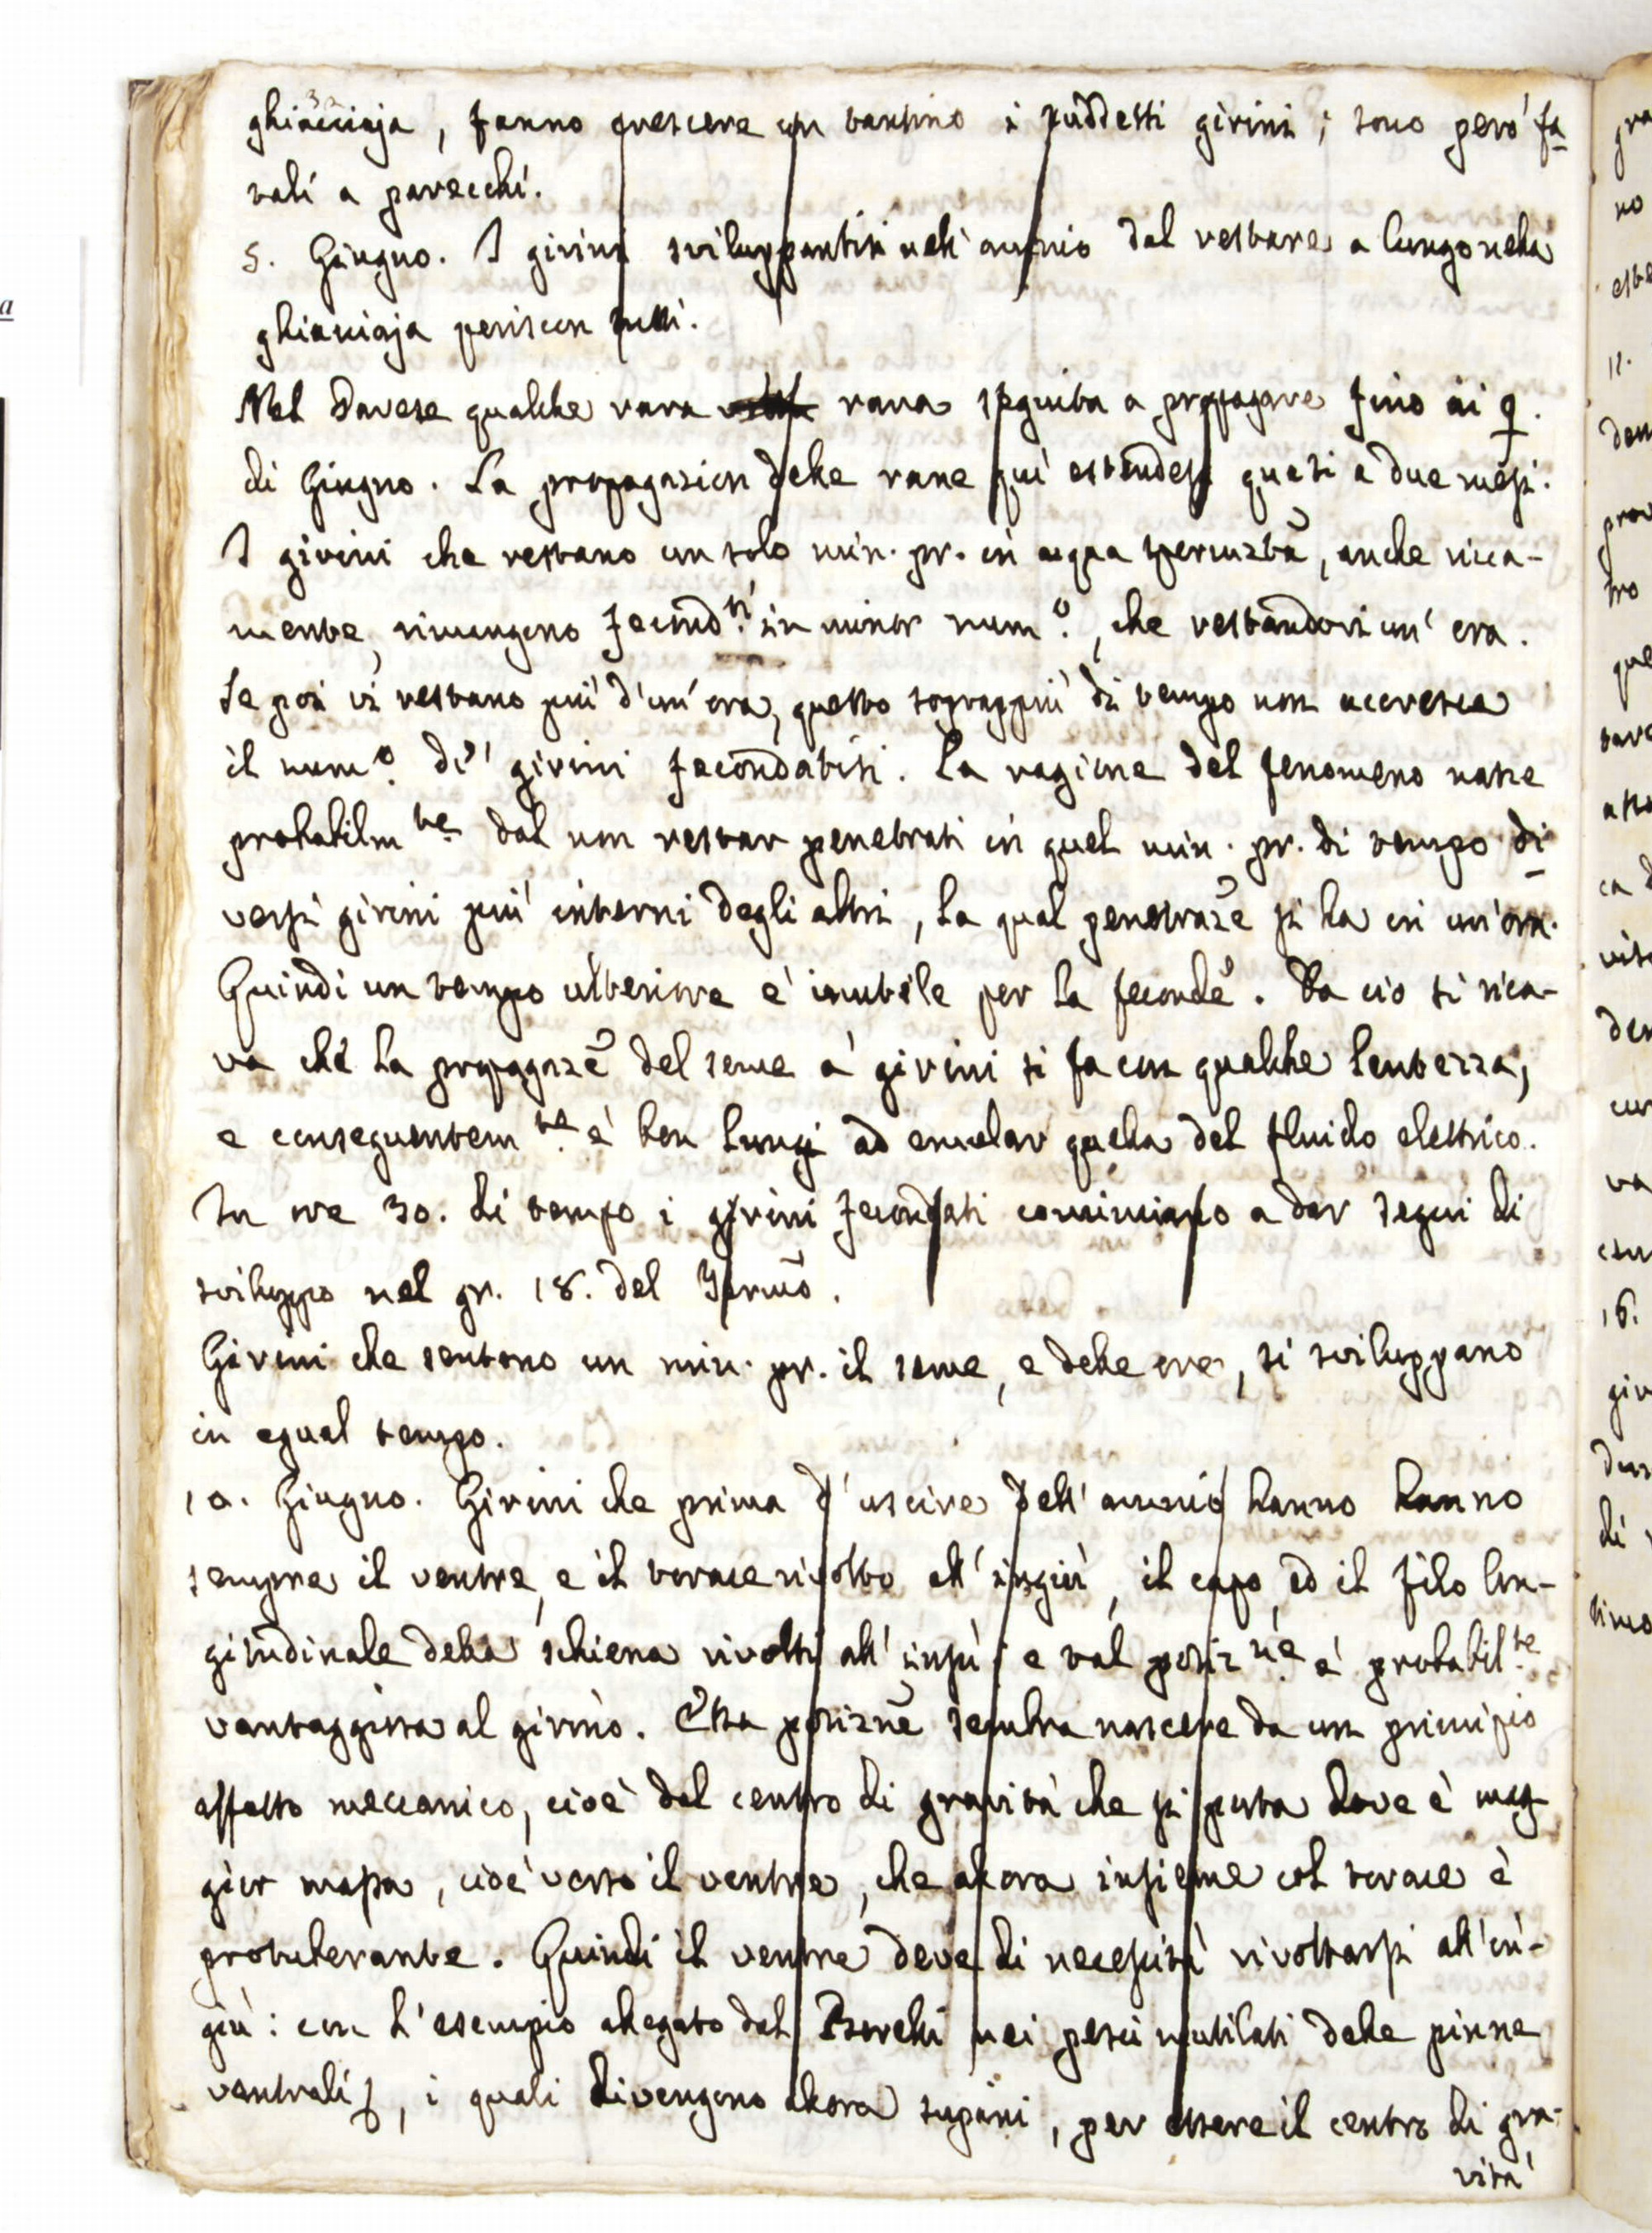 ghiacciaja, fanno crescere un tantino i suddetti girini; sono però fa-
tali a parecchi.
5. Giugno. I girini sviluppantisi nell'amnio dal restare a lungo nella
ghiacciaja periscon tutti.
Nel Pavese qualche rara rana seguita a propagare fino ai 9.
di Giugno. La propagazion delle rane qui estendesi quasi a due mesi.
I girini che restano un solo min. pr. in acqua spermata, anche ricca-
mente, rimangono fecond.ti in minor num.o, che restandovi un'ora.
Se poi vi restano più d'un'ora, questo soprappiù di tempo non accresce
il num.o de' girini fecondatisi. La ragione del fenomeno nasce
probabilm.te dal non restar penetrati in quel min. pr. di tempo di-
versi girini più interni degli altri, la qual penetraz.e si ha in un'ora.
Quindi un tempo ulteriore è inutile per la feconde. Da cio si rica-
va che la propagaz.e del seme a' girini si fa con qualche lentezza,
e conseguentem.te è ben lungi ad emular quella del fluido elettrico.
In ore 30. di tempo i girini fecondati cominciano a dar segni di
sviluppo nel gr. 18. del Termo.
Girini che sentono un min. pr. il seme, e delle ore, si sviluppano
in egual tempo.
10. Giugno. Girini che prima d'uscire dell'amnio hanno hanno
sempre il ventre, e il torace rivolto all'ingiù, il capo, ed il filo lon-
gitudinale della schiena rivolti all'insù; e tal posiz.ne è probabil.te
vantaggiosa al girino. Essa posizne sembra nascere da un principio
affatto meccanico, cioè dal centro di gravità che si porta dove è mag-
gior massa, cioè verso il ventre, che allora insieme col torace è
protuberante. Quindi il ventre deve di necessità rivoltarsi all'in-
giù: con l'esempio allegato dal Borelli nei pesci mutilati delle pinne
ventrali, i quali divengono allora supini, per essere il centro di gra-
vità